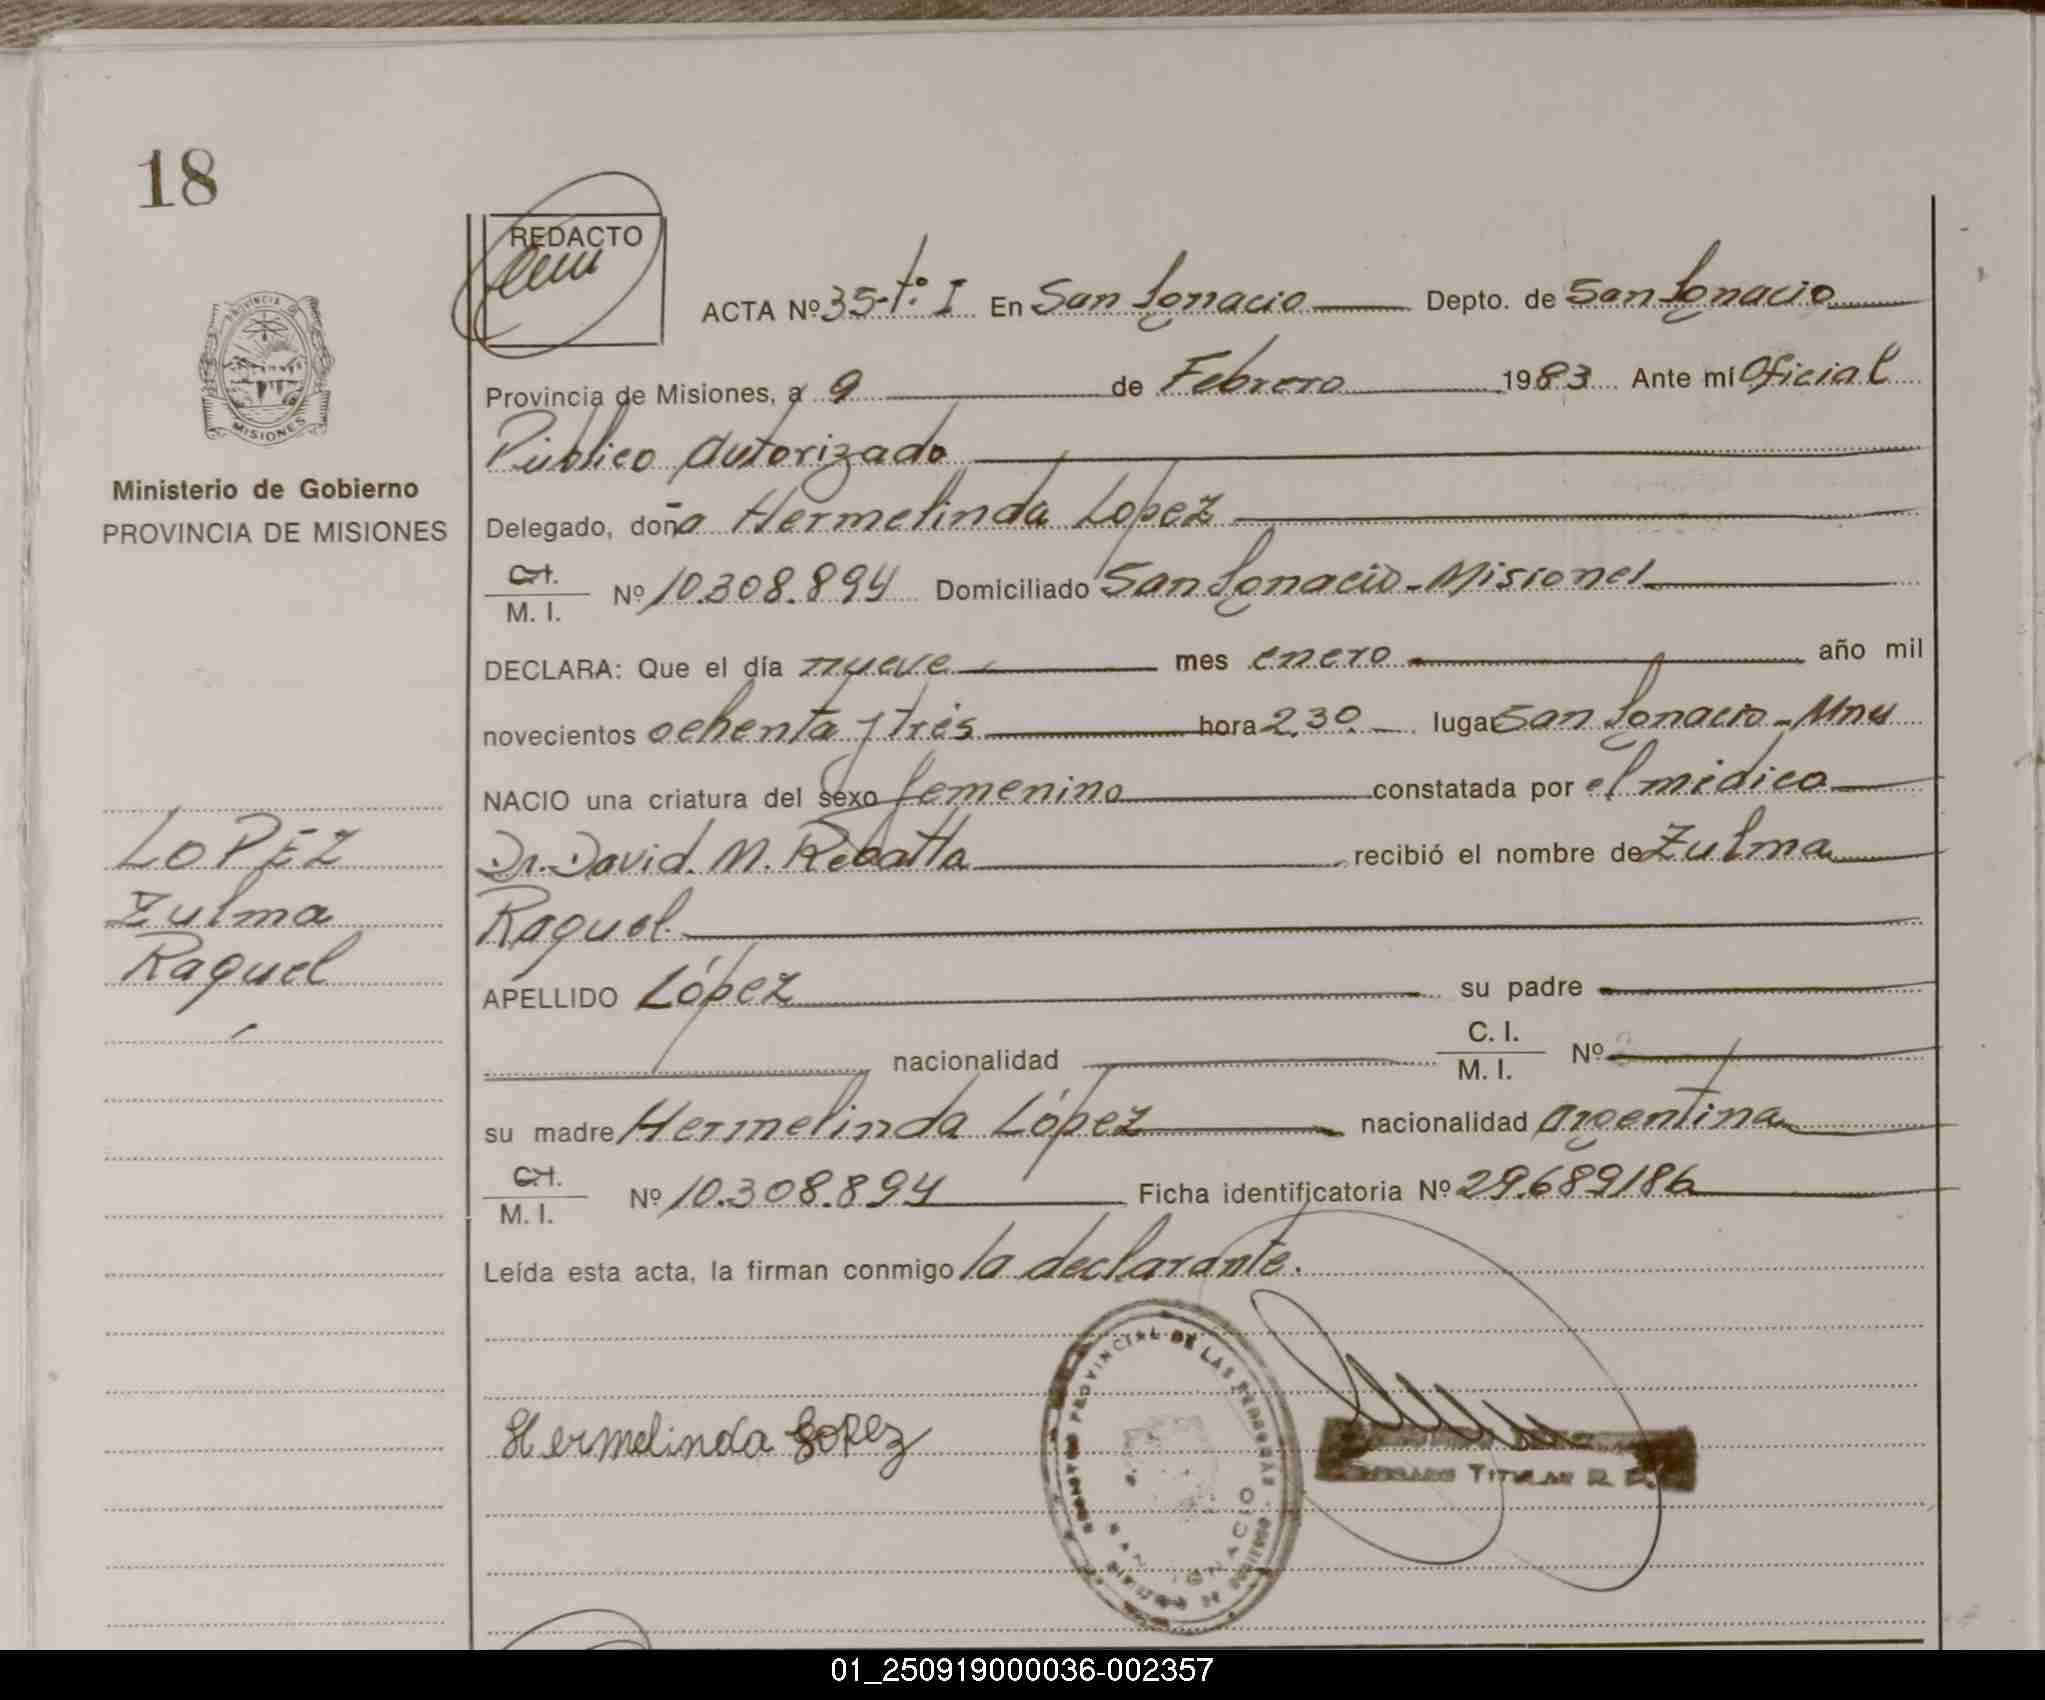 18
REDACTO
ACTA Nº 35-tº I En San Ignacio Depto. de San Ignacio
Provincia de Misiones, a 9 de Febrero 1983 Ante mí Oficial
Público Autorizado
PROVINCIA
MISIONES
Ministerio de Gobierno
PROVINCIA DE MISIONES
Delegado, doña Hermelinda Lopez
C.I.
M. I. Nº 10.308.894 Domiciliado San Ignacio - Misiones
DECLARA: Que el día nueve mes enero año mil
novecientos ochenta y trés hora 2,30. lugar San Ignacio - Mnes
NACIO una criatura del sexo femenino constatada por el médico
Dr. David. M. recibió el nombre de Zulma
Raquel.
LOPEZ
Zulma
Raquel
APELLIDO López su padre
nacionalidad C. I.
M. I. Nº
su madre Hermelinda López nacionalidad argentina
C.I.
M. I. Nº 10.308.894 Ficha identificatoria Nº 29.689186
Leída esta acta, la firman conmigo la declarante.
Hermelinda Lopez
PROVINCIAL DE LAS PERSONAS
SAN IGNACIO
TITULAR R. P.
01_250919000036-002357